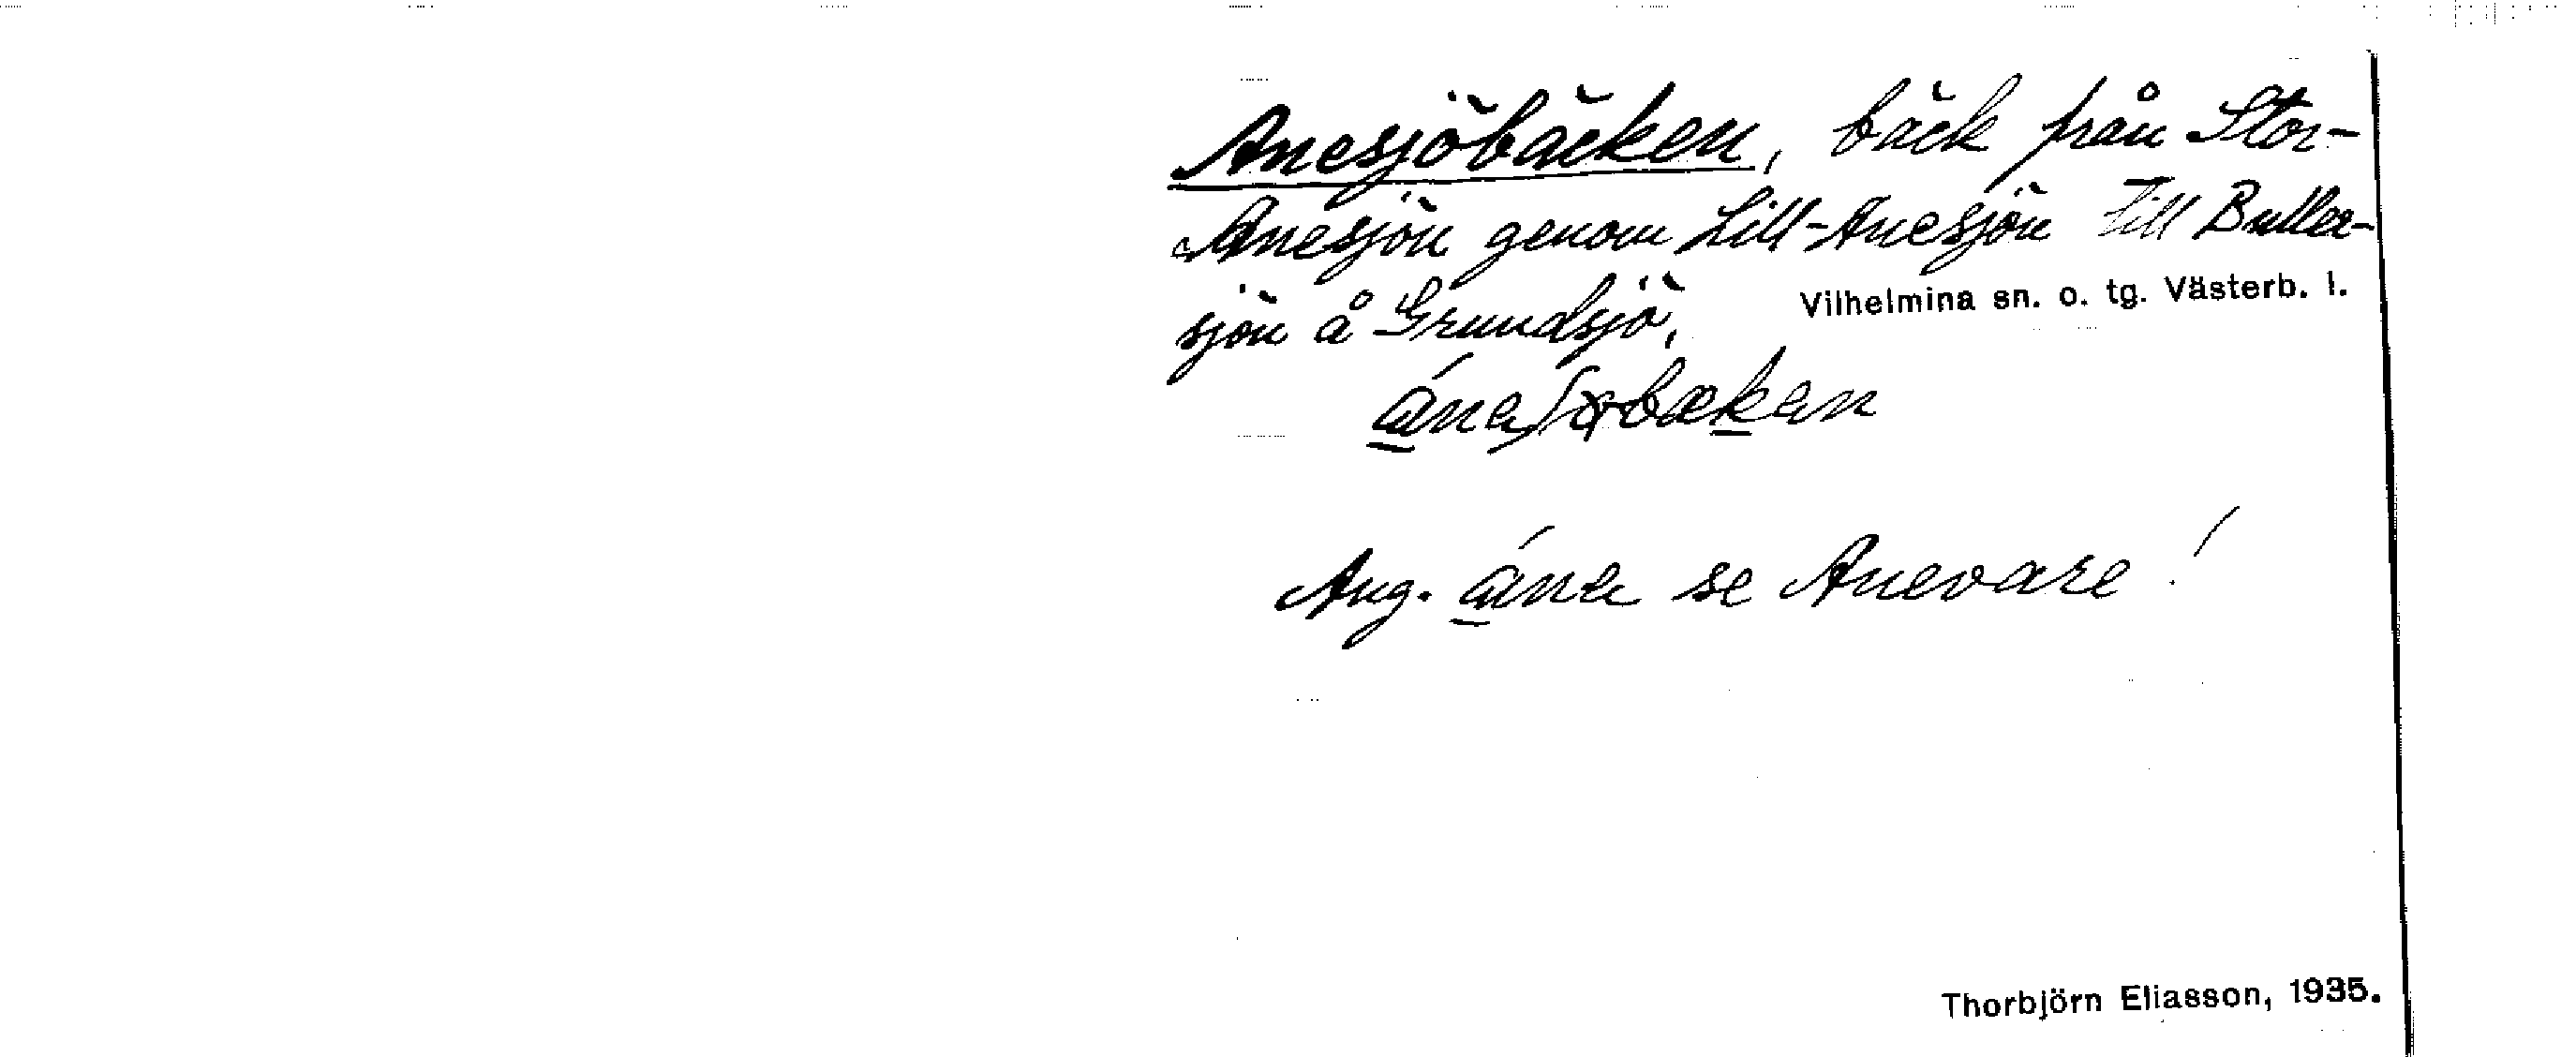 Anesjöbäcken, bäck från Stor-
Anesjön genom Lill-Anesjön till Buller-
sjön å Grundsjö.
Vilhelmina sn. o. tg. Västerb. l.
Ang. se Anevare!
Thorbjörn Eliasson, 1935.